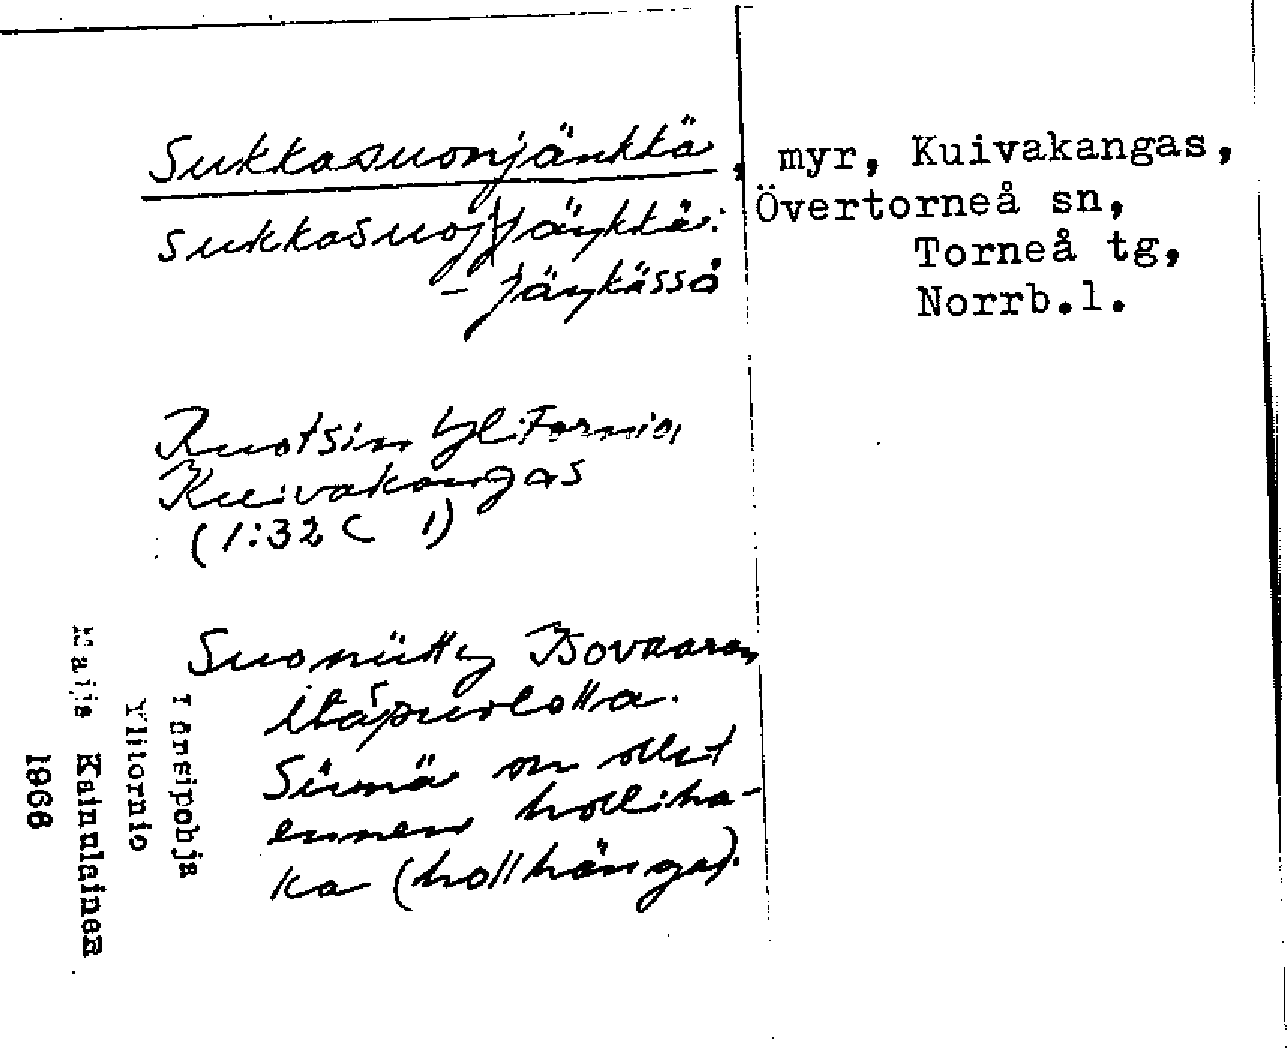 Sukkasuonjänkkä, myr, Kuivakangas,
Övertorneå sn,
Torneå tg,
Norrb.l.
sukkasuoj|jäŋkkä:
- jäŋkässä
Ruotsin Ylitornio,
Kuivakangas
(1:32 C 1)
Suoniitty Isovaaran
itäpuolella.
Siinä on ollut
ennen holliha-
ka (hollhänga).
Länsipohja
Ylitornio
Maija Kainulainen
1966